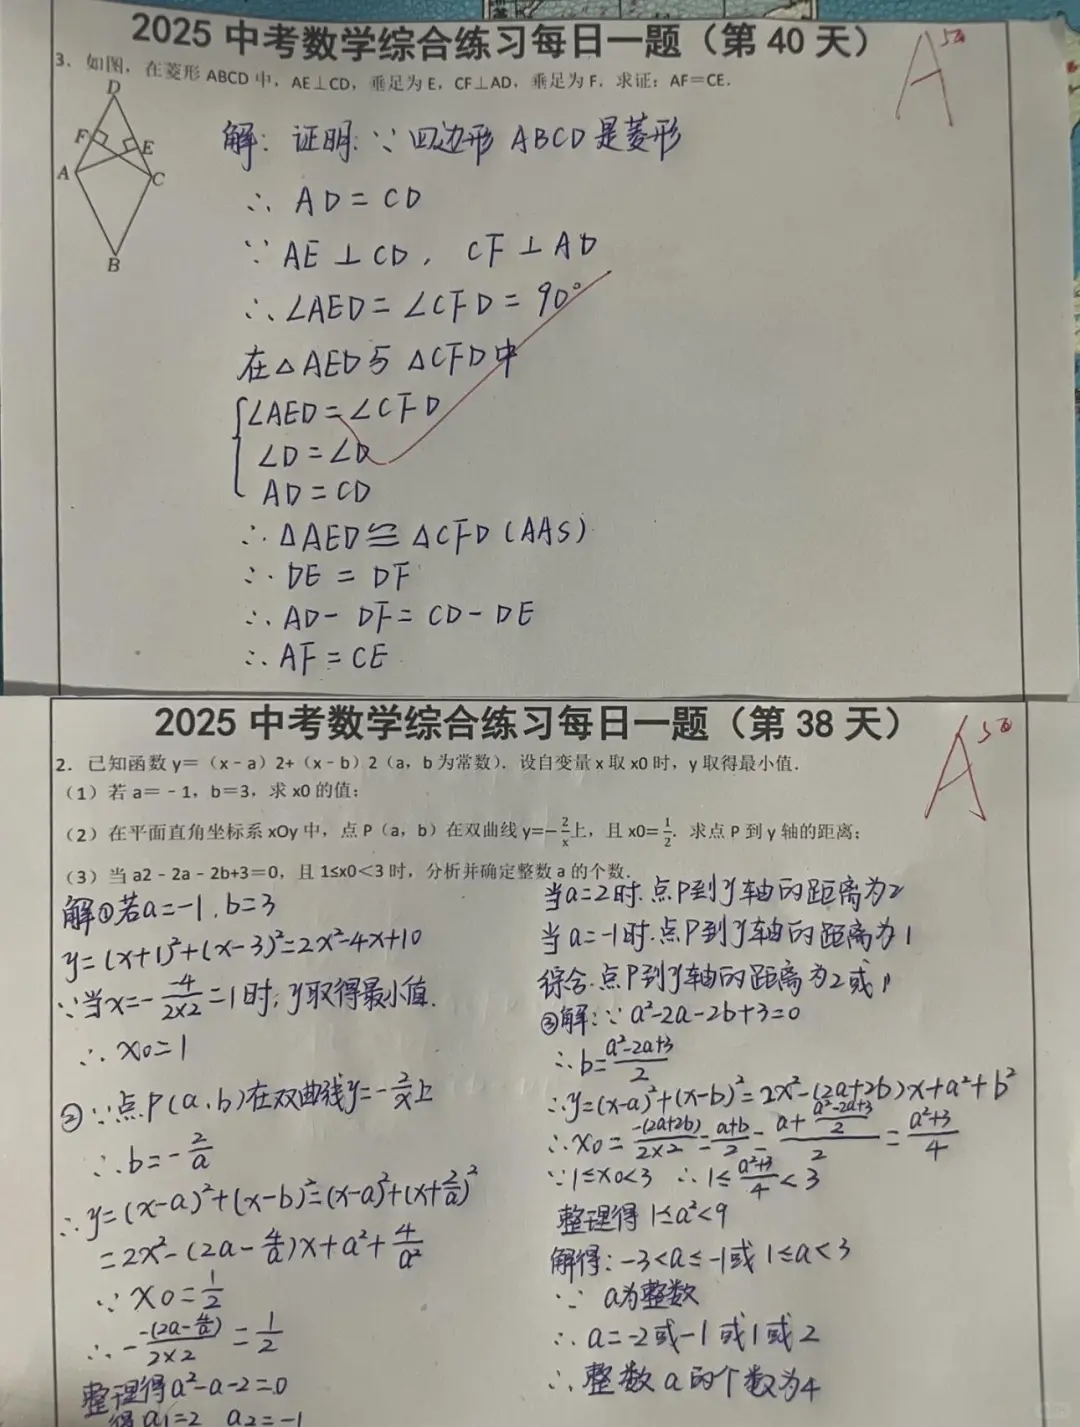 2025 中考数学综合练习每日一题（第 40 天）
A
3. 如图，在菱形 ABCD 中，AE⊥CD，垂足为 E，CF⊥AD，垂足为 F．求证：AF=CE．
D
F
E
A
C
B
解：证明：∵四边形 ABCD 是菱形
∴ AD = CD
∵ AE ⊥ CD，CF ⊥ AD
∴ ∠AED = ∠CFD = 90°
在△AED与△CFD中
∠AED = ∠CFD
∠D = ∠D
AD = CD
∴ △AED ≌ △CFD (AAS)
∴ DE = DF
∴ AD - DF = CD - DE
∴ AF = CE
2025 中考数学综合练习每日一题（第 38 天）
A
2. 已知函数 y=（x﹣a）2+（x﹣b）2（a，b 为常数）．设自变量 x 取 x0 时，y 取得最小值．
（1）若 a=﹣1，b=3，求 x0 的值；
（2）在平面直角坐标系 xOy 中，点 P（a，b）在双曲线 y=-2/x上，且 x0=1/2．求点 P 到 y 轴的距离；
（3）当 a2﹣2a﹣2b+3=0，且 1≤x0＜3 时，分析并确定整数 a 的个数．
解①若a=-1，b=3
y=(x+1)²+(x-3)²=2x²-4x+10
∵当x=-(-4)/(2×2)=1时，y取得最小值．
∴ x0=1
②∵点P(a,b)在双曲线y=-2/x上
∴b=-2/a
∴y=(x-a)²+(x-b)²=(x-a)²+(x+2/a)²
=2x²-(2a-4/a)x+a²+4/a²
∵ x0=1/2
∴ -(-(2a-4/a))/(2×2) = 1/2
整理得a²-a-2=0
得a1=2 a2=-1
当a=2时.点P到y轴的距离为2
当a=-1时.点P到y轴的距离为1
综合.点P到y轴的距离为2或1
③解：∵a²-2a-2b+3=0
∴b=(a²-2a+3)/2
∴y=(x-a)²+(x-b)²=2x²-(2a+2b)x+a²+b²
∴x0=-(2a+2b)/(2×2)=(a+b)/2=(a+(a²-2a+3)/2)/2=(a²+3)/4
∵1≤x0<3 ∴1≤(a²+3)/4<3
整理得 1≤a²<9
解得：-3<a≤-1或1≤a<3
∵ a为整数
∴ a=-2或-1或1或2
∴ 整数a的个数为4